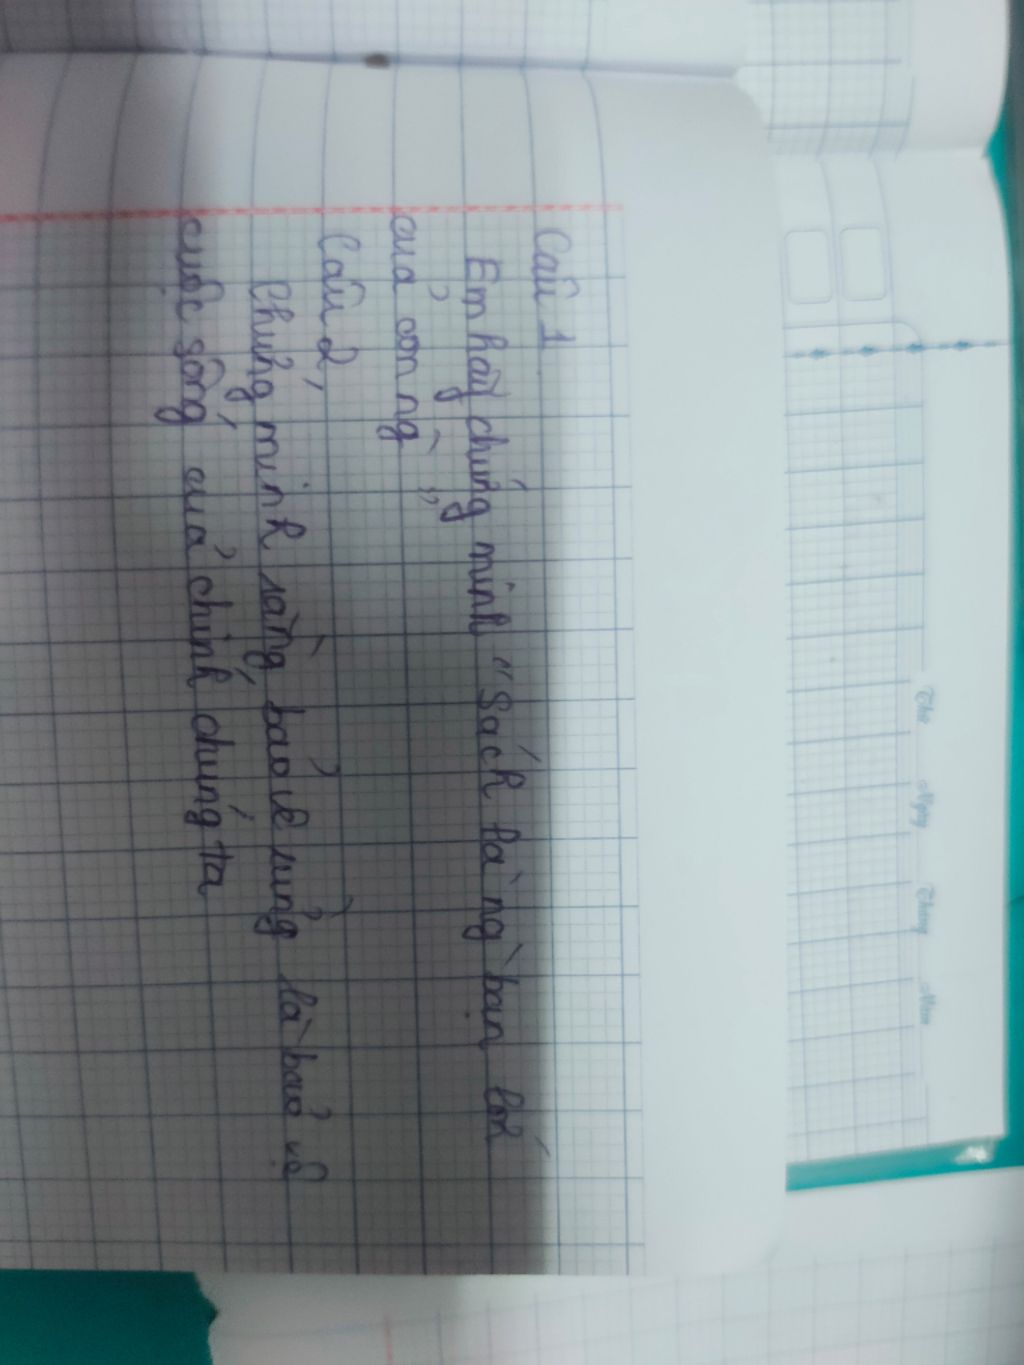 Câu 1
Em hãy chứng minh "Sách là ng` bạn lớn
của con ng` "
Câu 2
Chứng minh rằng bảo vệ rừng là bảo vệ
cuộc sống của chính chúng ta
Thứ Ngày Tháng Năm